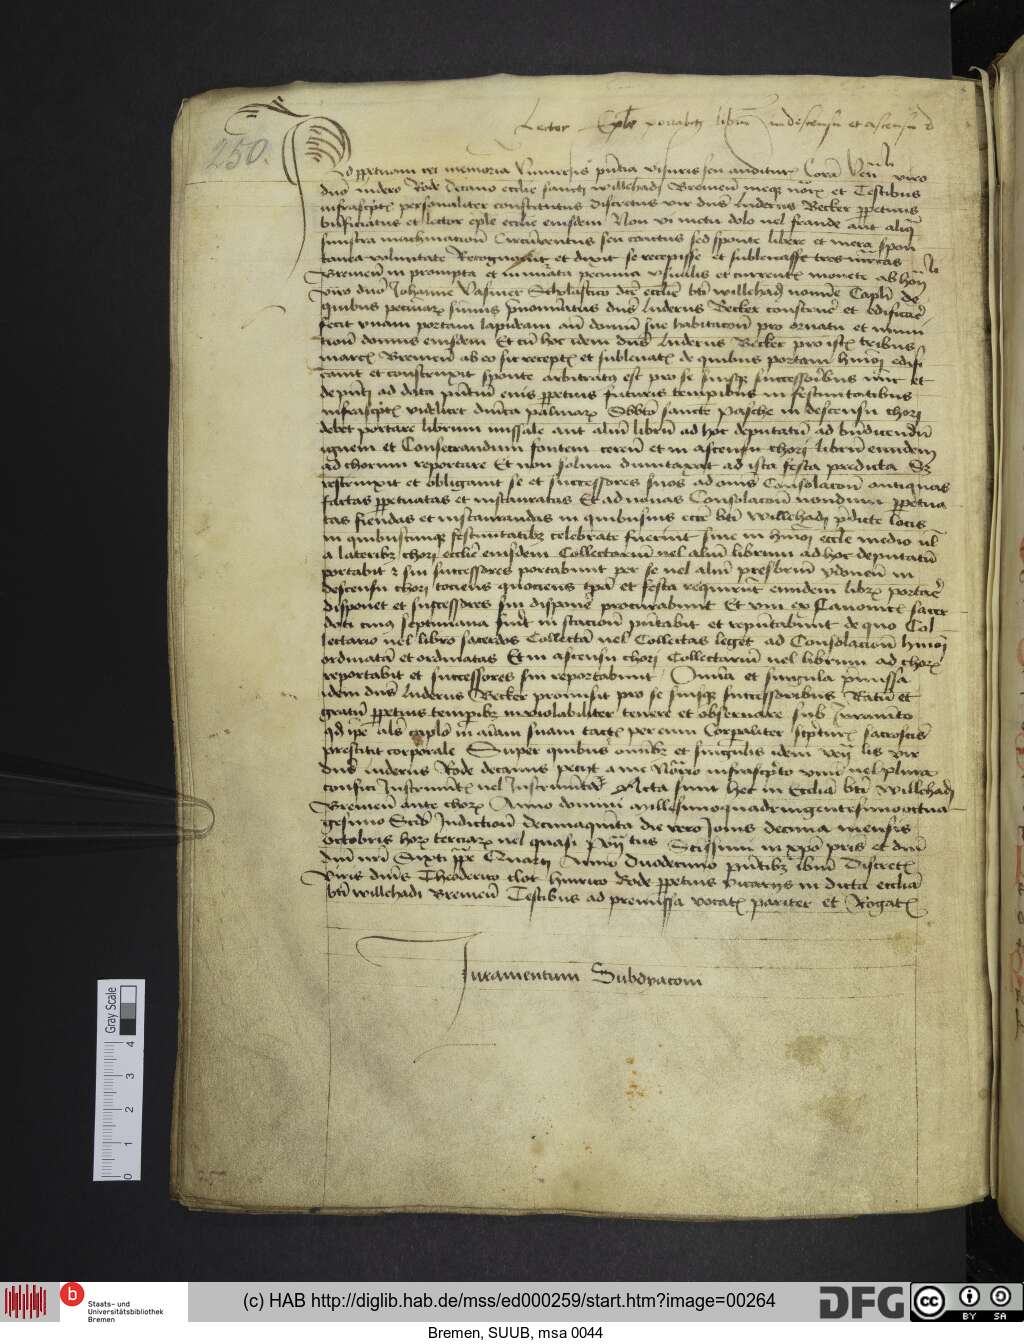 250.
Lector Ep̅le portabit libru̅ in descensu et ascensu
Ad p̲petuam rei memoria Vniuersis p̅ntia visuris seu audituris Cora̅ Ven̅li viro
dn̅o ludero Rode Decano ecclie̅ sancti willehadi Bremen̅ meq̅ not̅o et Testibus
infrascpt̅ personaliter constitutus Discretus vir dn̅s luderus Becker p̲petuus
b̅nficiatus et lector ep̅le ecclie̅ eiusdem Non vi metu dolo uel fraude aut aliq̅
sinistra machinatione̅ Circu̅uentus seu coactus sed sponte libere et mera spon
tanea voluntate Recognouit et dixit se recepisse et subleuasse tres marcas
Bremen̅ in prompta et numerata pecunia vsualis et current̅ monete ab hon̅li
viro dn̅o Johanne Vasmer Scholastico dc̅e ecclie̅ bt̅i willehadi nomi̅e Capl̅i De
quibus pecuniar̅ su̅mis p̅nominatus dn̅s luderus Becker construe̅ et edificae̅
fecit vnam portam lapideam an̅ domu̅ sue habitacion̅ pro ornatu et muni
tion̅ domus eiusdem Et cu̅ hoc idem dn̅s luderus Becker pro ist̅ tribus
marc̅ Bremen̅ ab eo sic recept̅ et subleuat̅ de quibus portam hmo̅i edifi
cauit et construxit sponte arbitratus est pro se suisq̅ successoribus nu̅c et
deput̅ ad data p̅ntiu̅ eius p̲petuis futuris temp̲ibus in festiuitatibus
infrascpt̅ videlicet d̅nica palmar̅ Sbb̅to sancte Pasche in descensu chori
debet portare librum missale aut aliu̅ libru̅ ad hoc deputatu̅ ad b̅ndicendu̅
ignem et Consecrandum fontem cereu̅ et in ascensu chori libru̅ eundem
ad chorum reportare Et non solum dumtaxat ad ista festa predicta Sz
restrinxit et obligauit se et successores suos ad om̅es Consolacion̅ antiquas
factas p̲petuatas et instauratas Et ad nouas Consolacion̅ nondum p̲petua
tas fiendas et instaurandas in quibusuis ecc̅e bt̅i willehadi p̅dicte locis
in quibuscunq̅ festiuitatibz celebrate fuerint siue in hmo̅i eccl̅e medio vl̅
a lateribz chori ecclie̅ eiusdem Collectarium vel aliu̅ librum ad hoc deputatu̅
portabit z sui successores portabunt per se uel aliu̅ presb̅rum ydoneu̅ in
descensu chori tociens quociens tp̅a et festa requirunt eundem libr̅ portae̅
disponet et successores sui dispone̅ procurabunt Et vni ex Canonic̅ sacer
doti cuius septimana fu̅it in stacion̅ pn̅tabit et reputabunt de quo Col
lectario uel libro sacerdos Collecta̅ uel Collectas leget ad Consolacion̅ hmo̅i
ordinata̅ et ordinatas Et in ascensu chori Collectarium uel librum ad chor̅
reportabit et successores sui reportabunt Omnia et singula p̅missa
idem dn̅s luderus Becker promisit pro se suisq̅ successoribus Ratu̅ et
gratu̅ p̲petuis temp̲ibz inuiolabiliter tenere et obseruare sub Juramen̅to
prestitit corporale Super quibus om̅ibz et singulis idem ven̅lis vir
dn̅s luderus Rode decanus petijt a me Not̅io infrascpto vnu̅ uel plura
confici Instrument̅ uel Instrumenta Acta sunt hec in Ecclia̅ bt̅i Willehadi
Bremen̅ ante chor̅ Anno domini millesimoquadringentesimooctua
gesimo Scd̅o Indiction̅ decimaquinta die vero Jouis decima mensis
Octobris hora terciar̅ vel quasi
dn̅i nr̅i Sixti pp̅e Quarti Anno Duodecimo pn̅tibz ibm̅ Discret̅
Viris dn̅is Theoderico clot hinrico Rode p̲petuis vicarijs in dicta ecclia̅
bt̅i willehadi Bremen̅ Testibus ad premissa vocat̅ pariter et Rogat̅
Juramentum Subdyaconi
Gray Scale
0 1 2 3 4
b
Staats- und
Universitätsbibliothek
Bremen
(c) HAB http://diglib.hab.de/mss/ed000259/start.htm?image=00264
DFG
cc
BY SA
Bremen, SUUB, msa 0044